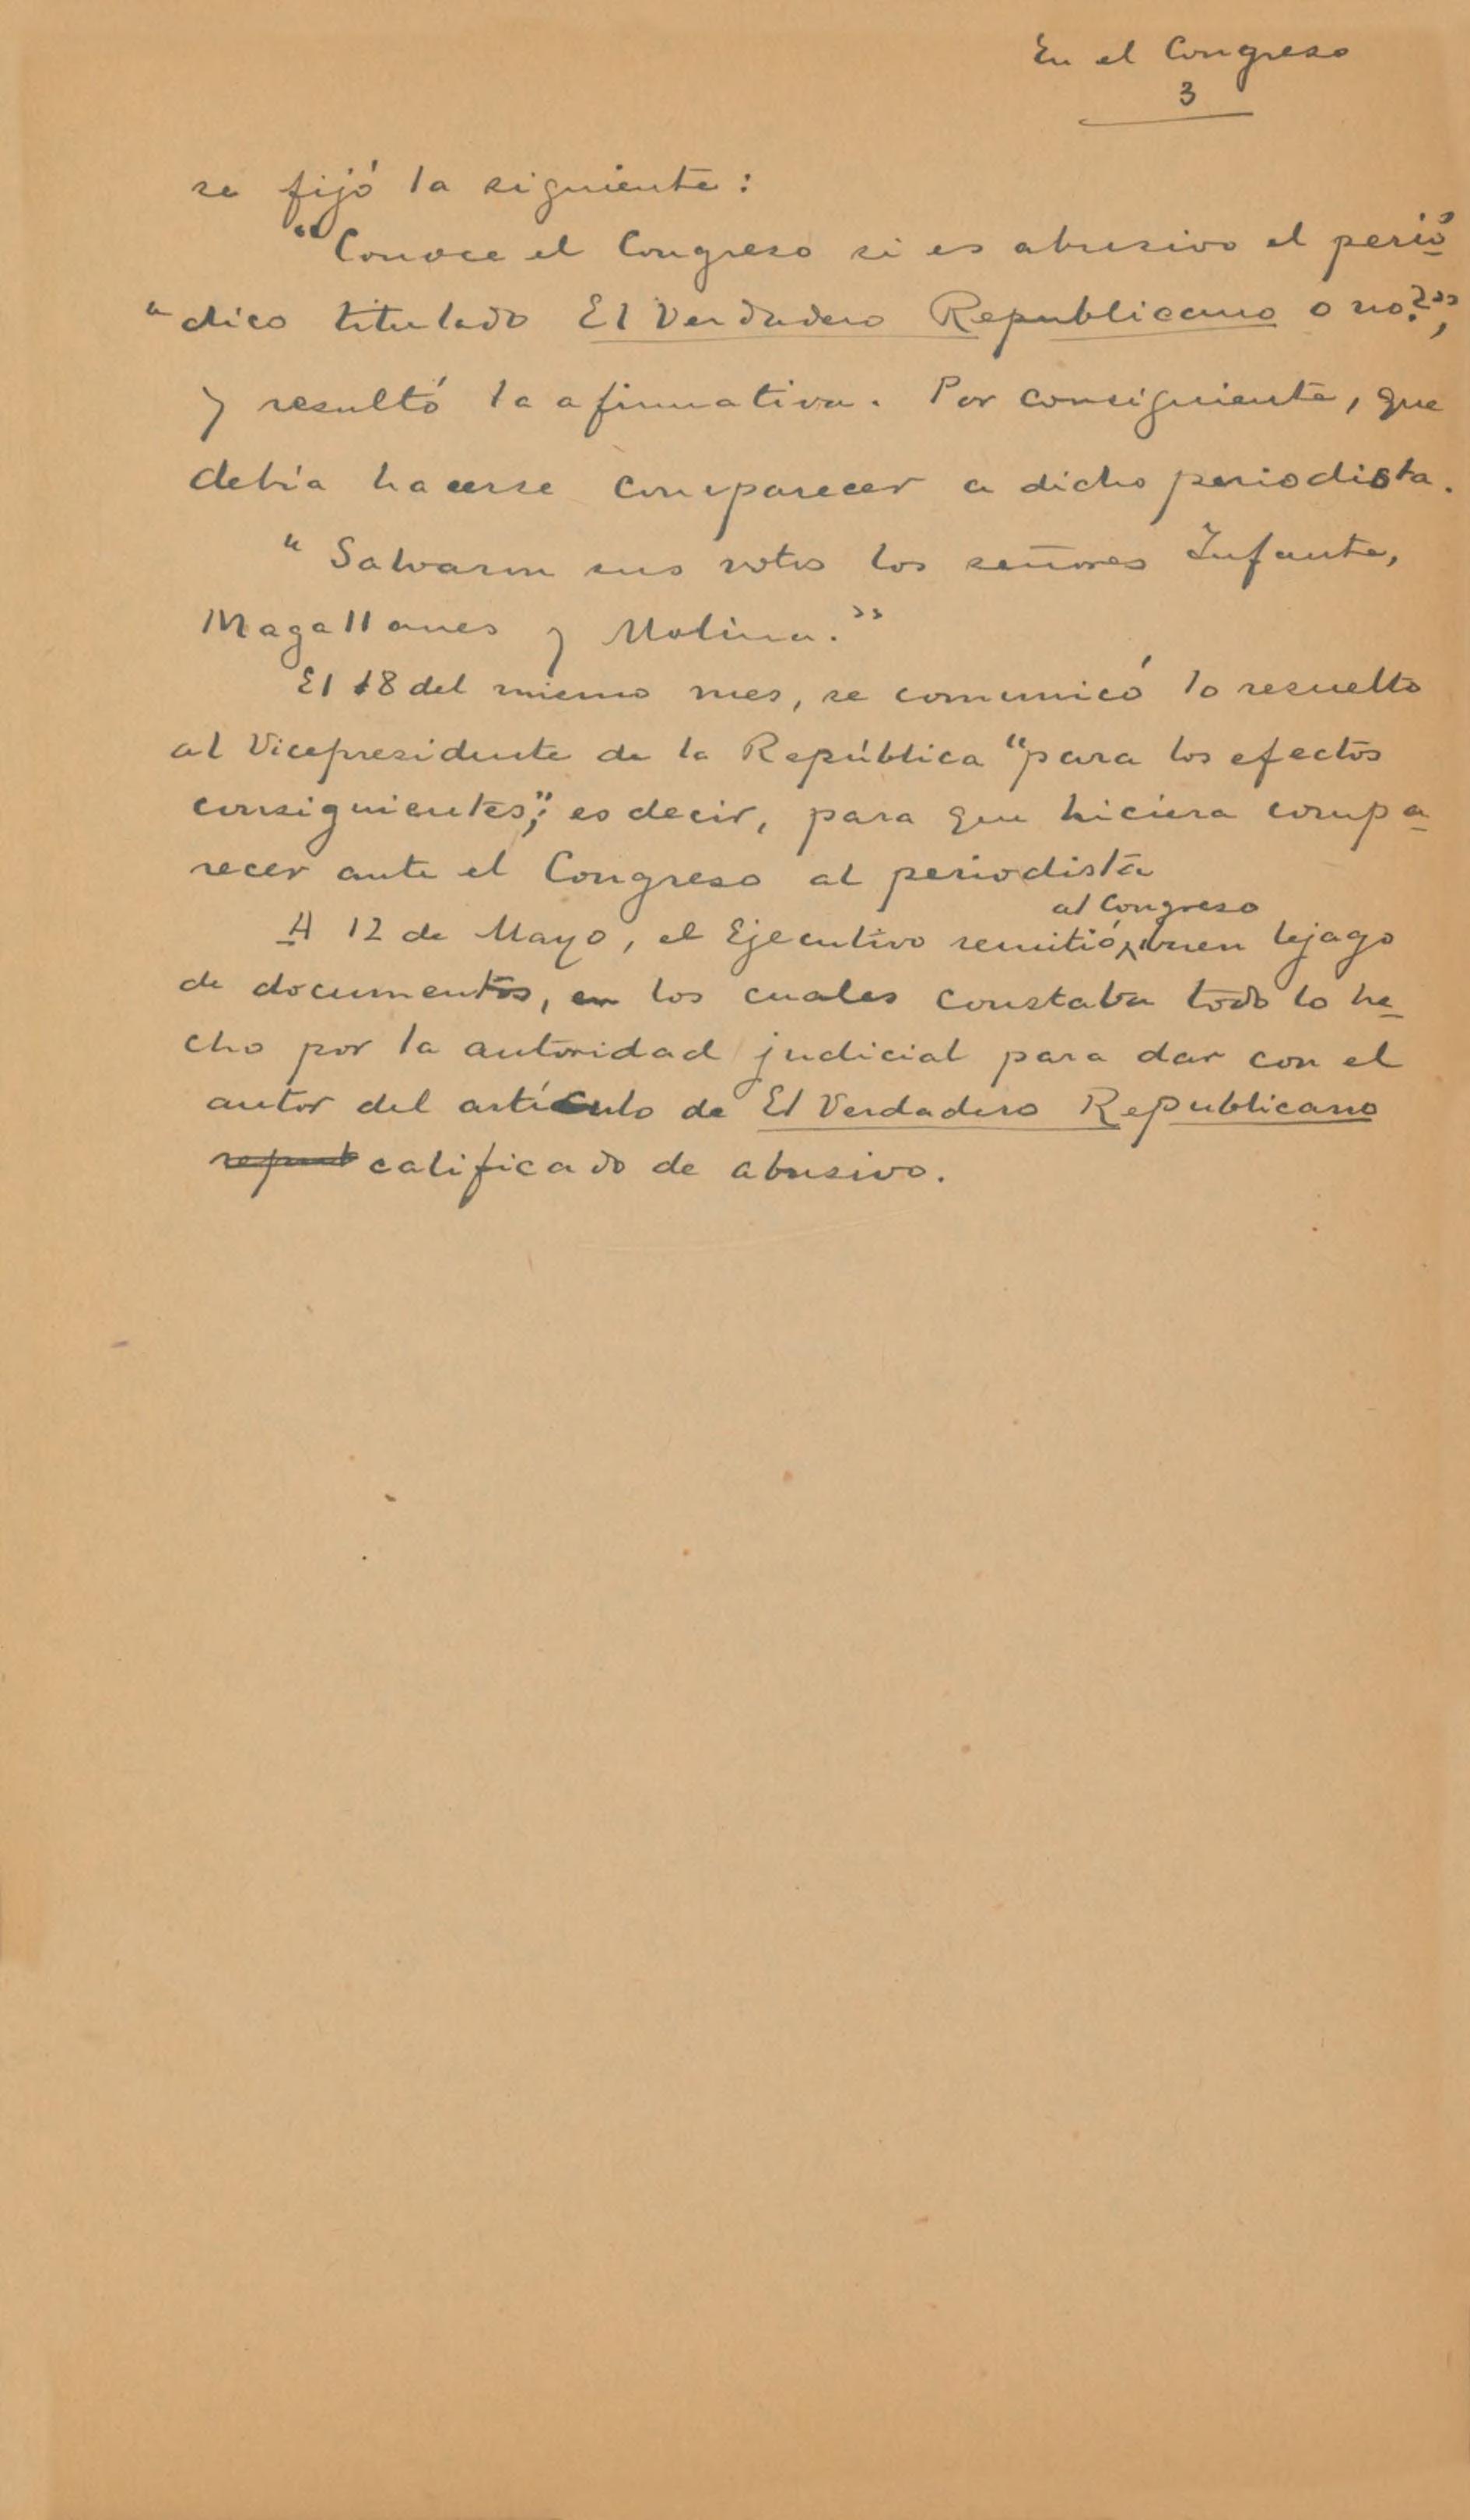 En el Congreso
3
se fijó la siguiente:
"Conoce el Congreso si es abusivo el perió
"dico titulado El Verdadero Republicano o no?",
y resultó la afirmativa. Por consiguiente, que
debía hacerse comparecer a dicho periodista.
"Salvaron sus votos los señores Infante,
Magallanes y Molina."
El 18 del mismo mes, se comunicó lo resuelto
al Vicepresidente de la República "para los efectos
consiguientes"; es decir, para que hiciera compa
recer ante el Congreso al periodista
al Congreso
A 12 de Mayo, el Ejecutivo remitió, buen legajo
de documentos, en los cuales constaba todo lo he
cho por la autoridad judicial para dar con el
autor del artículo de El Verdadero Republicano
calificado de abusivo.